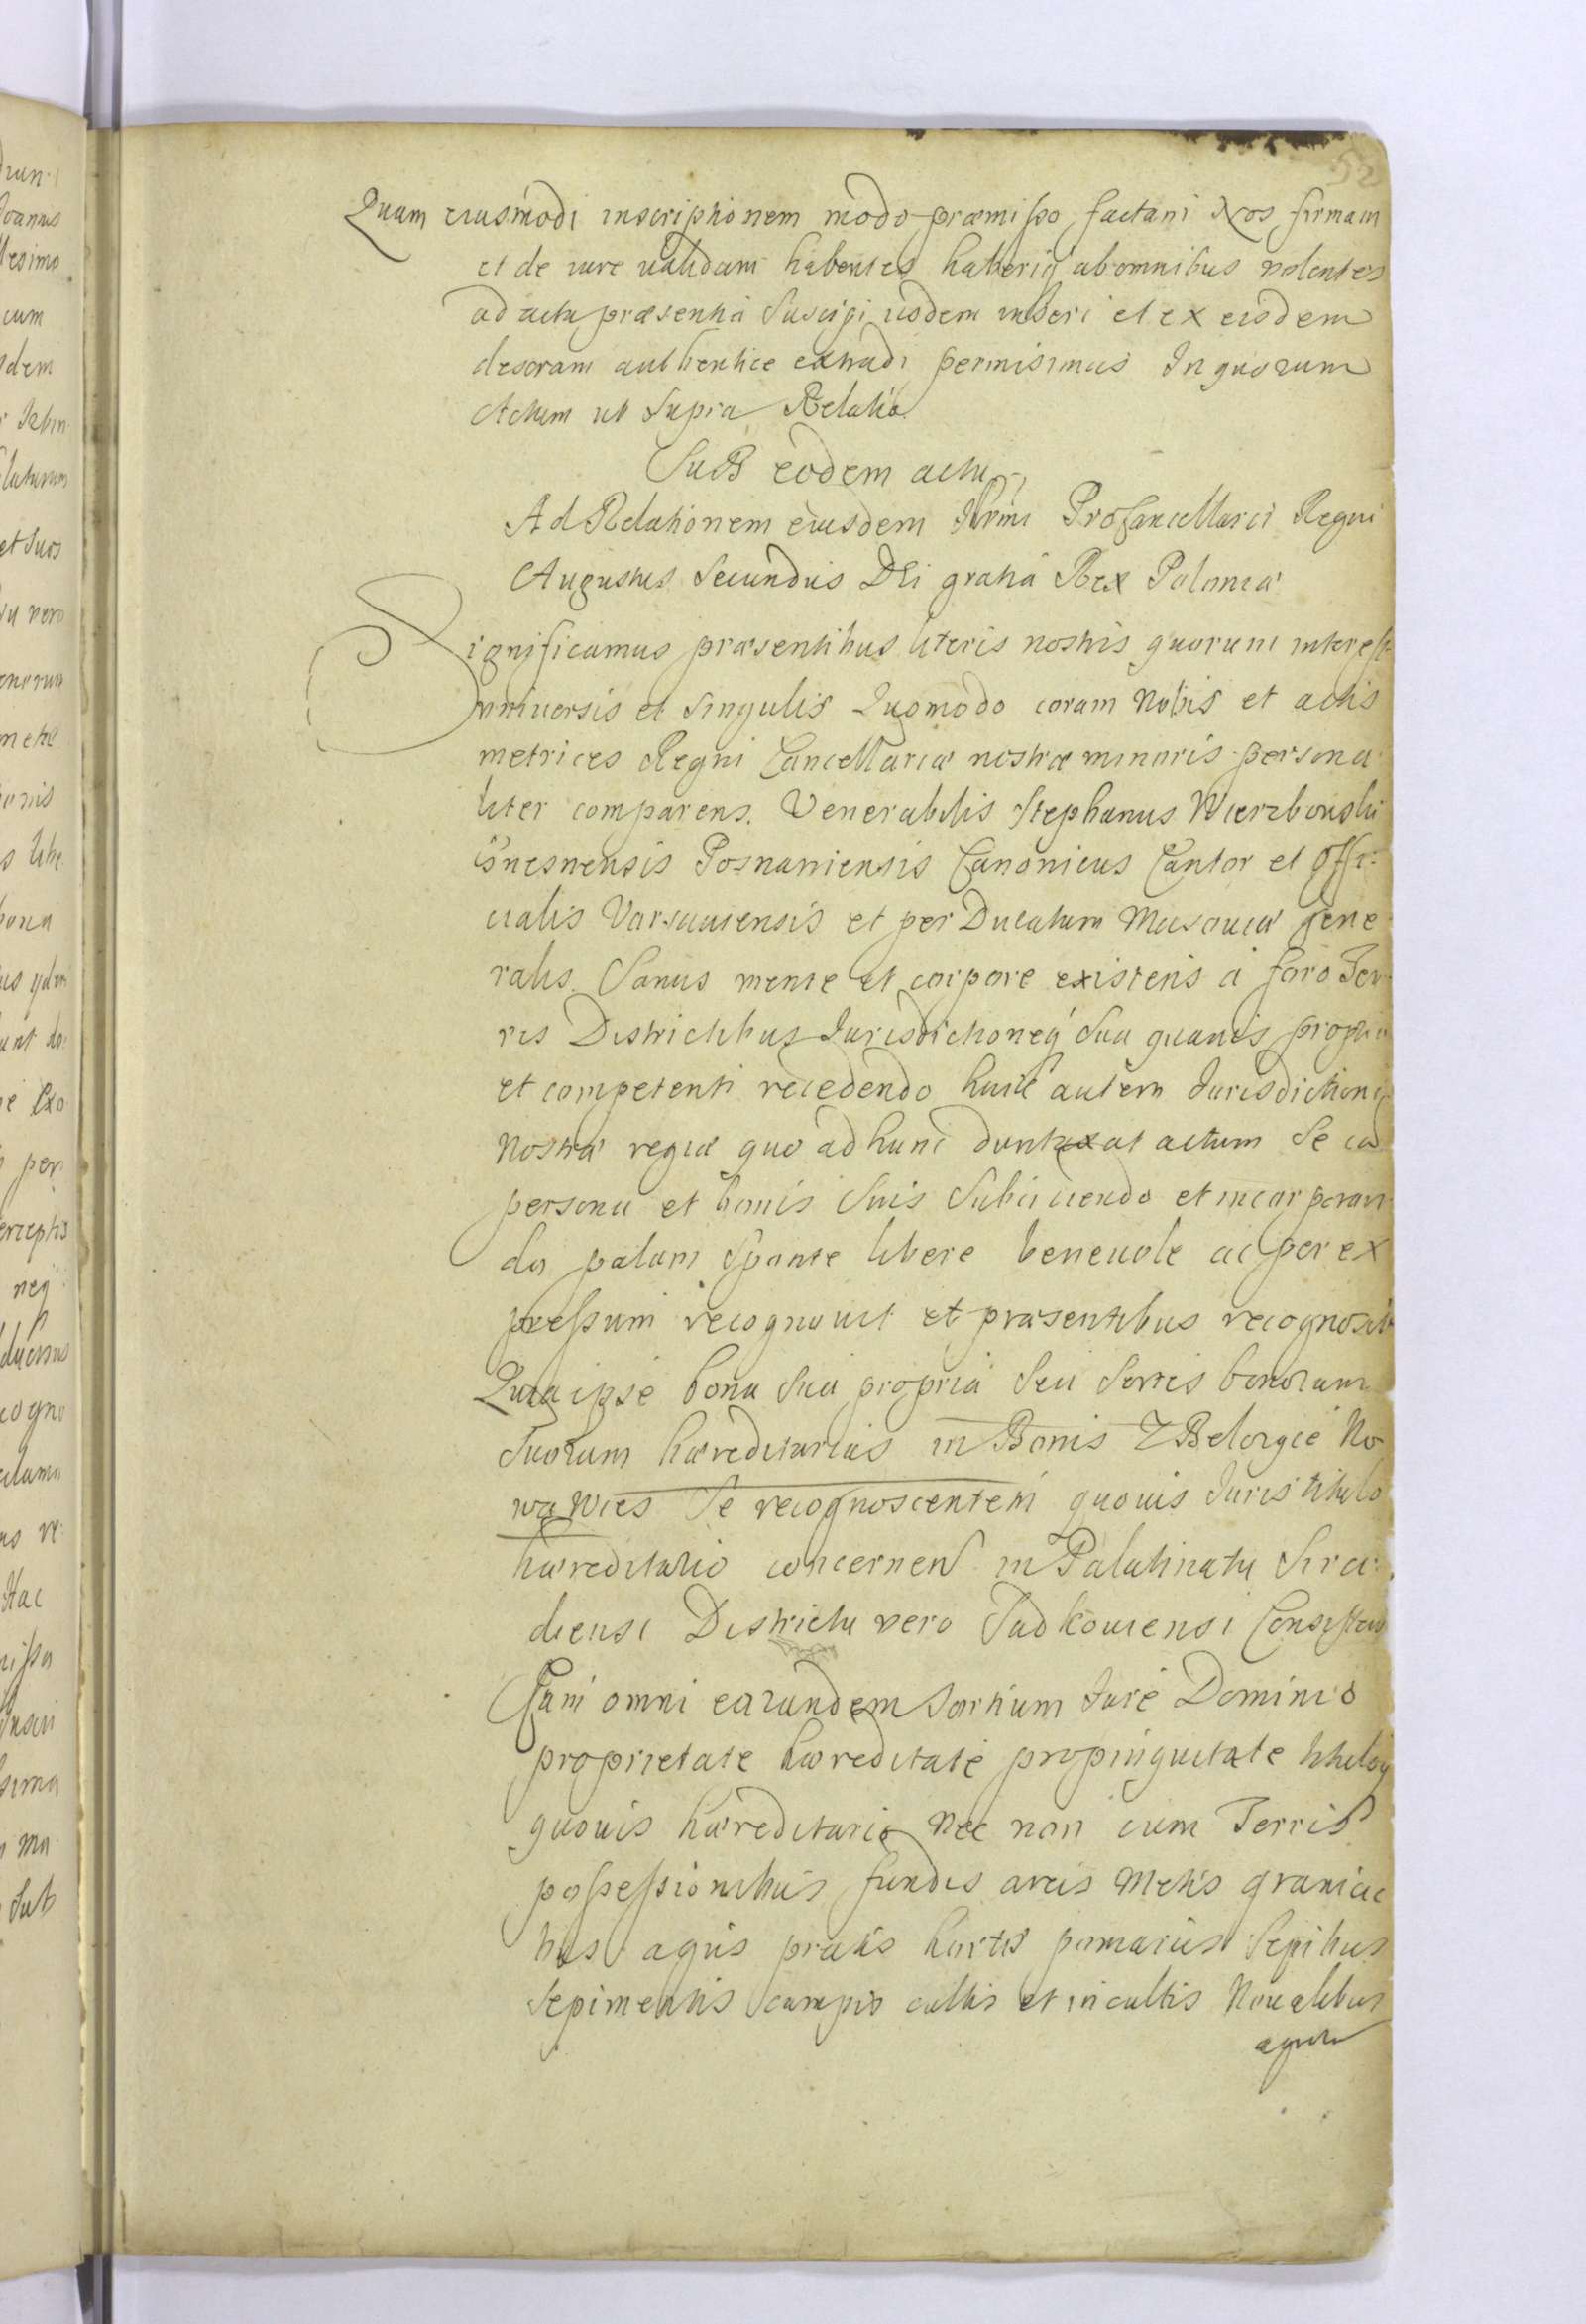 52
Quam eiusmodi inscriptionem modo præmisso factam Nos firmam
et de iure validam habentes haberiq ab omnibus volentes
ad acta præsentia suscipi iisdem inseri et ex eisdem
desoram authentice extradi permisimus In quorum
Actum ut supra Relatio
SuB eodem actu
Ad Relationem eiusdem Illrmi ProCancellarii Regni
Augustus Secundus DEi gratiâ Rex Poloniæ
Significamus præsentibus literis nostris quorum interest
universis et singulis Quomodo coram Nobis et actis
metrices Regni Cancellariæ nostræ minoris persona
liter comparens. Venerabilis Stephanus Wierzbowski
Gnesnensis Posnaniensis Canonicus Cantor et Offi:
cialis Varsauiensis et per Ducatum Masouiæ gene
ralis. Sanus mente et corpore existens à foro Ter
ris Districtibus Iurisdictioneq sua quauis propria
et competenti recedendo huic autem Iurisdictioni
Nostræ regiæ quo ad hunc duntaxat actum se cu
persona et bonis suis subiiciendo et incorporan
do palam sponte libere beneuole ac per ex
pressum recognouit et præsentibus recognoscit
Quia ipse bona sua propria seu sortes bonorum
suorum hæreditarias in Bonis ZBelorgie No
wa Wies se recognoscentem quouis Iuris titulo
hæreditario concernen in Palatinatu Sira:
diensi Districtu vero Sadkouiensi Consisten
Cum omni earundem sortium Iure Dominio
proprietate hæreditate propinquitate tituloq
quouis hæreditario Nec non cum Terris
possessionibus fundis areis Metis graniciebus
bus agris pratis hortis pomariis sepibus
sepimentis campis cultis et incultis Noualibus
agris